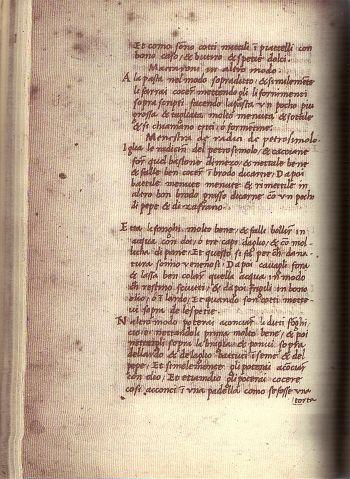 Et como sono cotti mittili i piattelli con
bono caso, & butiro & spetie dolci.
Maccaroni in altro modo.
A la pasta nel modo sopraditto, & similemente
li farai cocer mettendo gli li fornimenti
sopra scripti facendo la pasta un pocho piu
grossa & tagliata molto menuta, & sottile
& si chiamano criti, o formetine.
Menestra de radici de petrosimolo.
Piglia le radicine del petrosimolo, & cavane
for quel bastone di mezo, & nettale bene
& falle ben cocer i brodo Da poi
battile menute menute & rimettile in
altro bon brodo grasso un pocho
di pepe & di zafrano.
Netta li fonghi molto bene, & falli bollir in
acqua con doi, o tre capi daglio, & cō mol-
lucha di pane. Et questo si fa per chi da na-
tura sonno venenosi. Da poi cavagli fora
& lassa ben colar quella acqua in modo
chi restino sciutti, & da poi frigili in bono
olio, o i lardo, Et quando son cotti mette-
vi sopra de le spetie.
In altro modo poterai aconciar li ditti fōghi,
cioe, mettandoli primo molto bene, & poi
mettergli sopra la bragia & ponivi sopra
del lardo & de laglio battuti isieme & del
pepe, Et similemente gli poterai acōciar
con olio, Et etiamdio gli poterai cocere
cosi acconci i una padella como se fosse una
torta